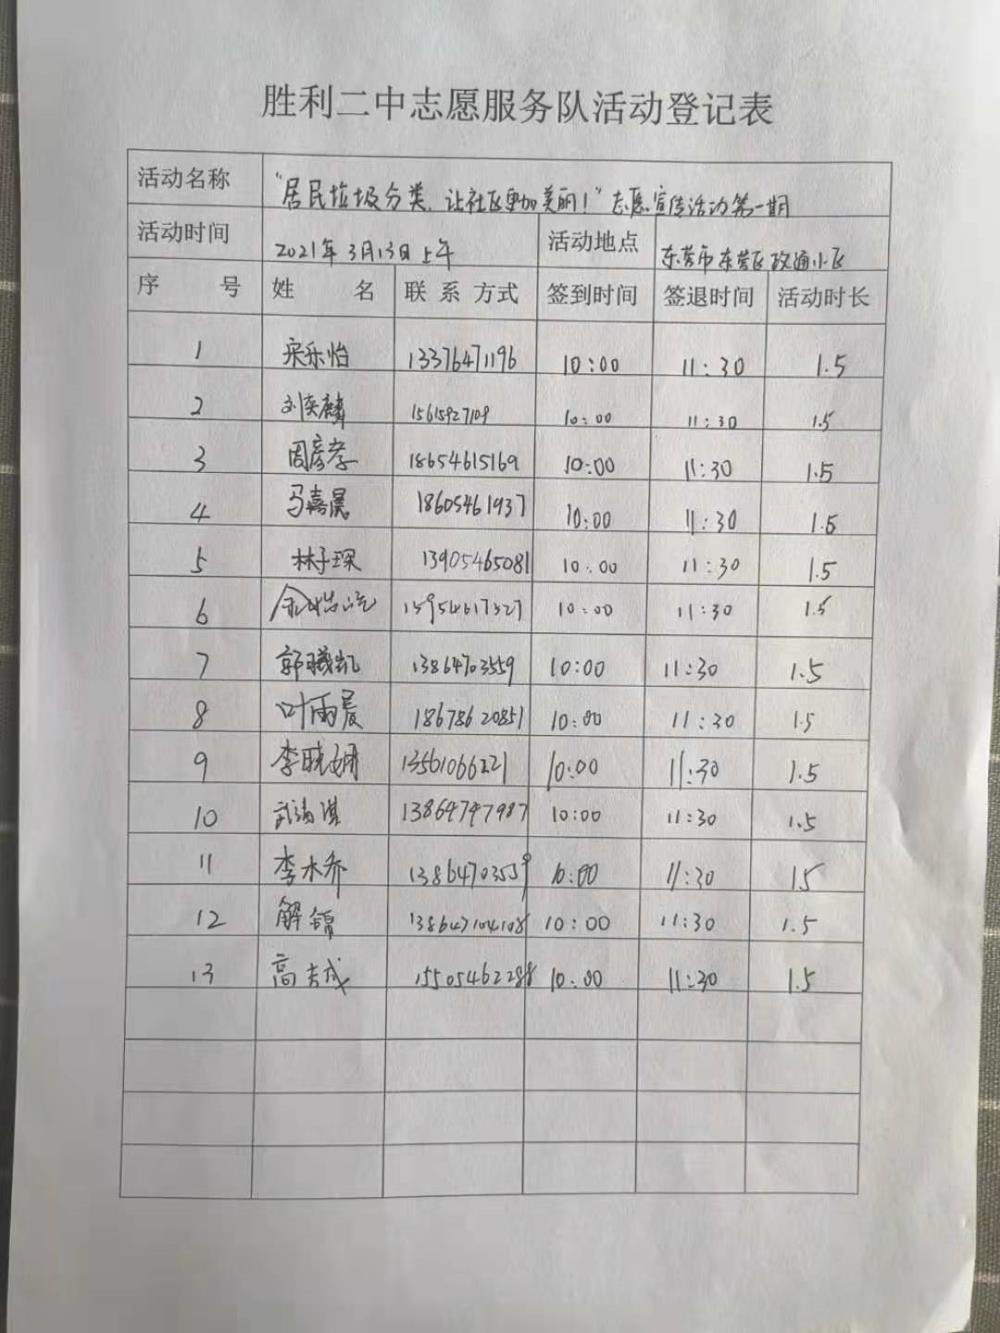 胜利二中志愿服务队活动登记表
活动名称 "居民垃圾分类,让社区更加美丽!"志愿宣传活动第一期
活动时间 2021年3月13日上午 活动地点 东营市东营区政通小区
序 号 姓 名 联系方式 签到时间 签退时间 活动时长
1 宋乐怡 13376471196 10:00 11:30 1.5
2 刘奕麟 15615927109 10:00 11:30 1.5
3 周彦孝 18654615169 10:00 11:30 1.5
4 马嘉晨 18605461937 10:00 11:30 1.5
5 林子琛 13905465081 10:00 11:30 1.5
6 15954617327 10:00 11:30 1.5
7 郭曦凯 13864703559 10:00 11:30 1.5
8 叶雨晨 18678620851 10:00 11:30 1.5
9 李晓姗 13561066221 10:00 11:30 1.5
10 13864747987 10:00 11:30 1.5
11 李木乔 13864703559 10:00 11:30 15
12 解锦 138647104108 10:00 11:30 1.5
13 高士成 15505462288 10:00 11:30 1.5